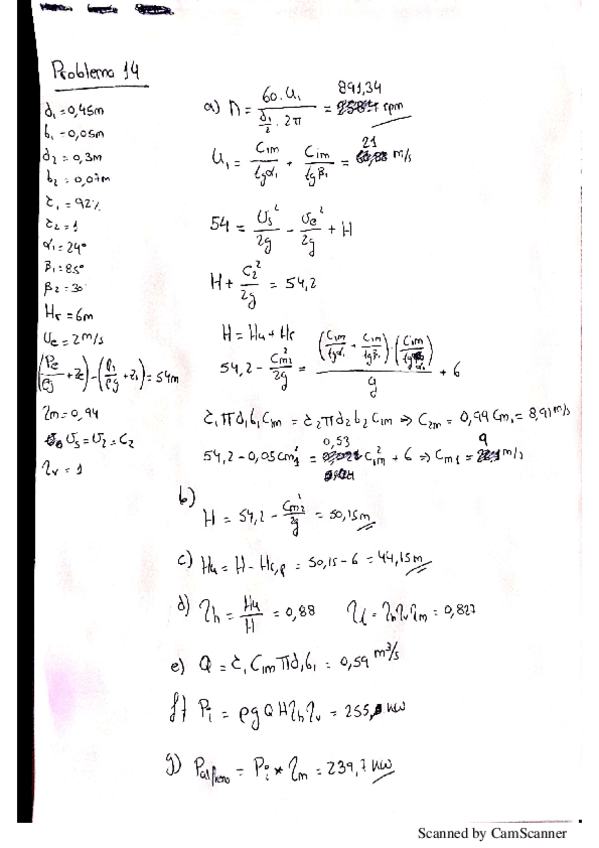 Problema 14
d₁=0,45m
b₁=0,05m
d₂=0,3m
b₂=0,07m
τ₁=92%
τ₂=1
α₁=24°
β₁=85°
β₂=30°
Hr=6m
Ue=2m/s
(Pe/ρg+ze)-(Ps/ρg+zs)=54m
ηm=0,94
Us=U₂=C₂
ηv=1
a) n = 60·U₁ / (d₁/2 · 2π) = 891,34 rpm
U₁ = C₁m/tgα₁ + C₁m/tgβ₁ = 21 m/s
54 = Us²/2g - Ue²/2g + H
H + C₂²/2g = 54,2
H = Hu + Hr
54,2 - Cm₂²/2g = (C₁m/tgα₁ + C₁m/tgβ₁)·(C₁m/tgα₁) / g + 6
τ₁πd₁b₁C₁m = τ₂πd₂b₂C₂m ⇒ C₂m = 0,99Cm₁ = 8,91 m/s
54,2 - 0,05Cm₁² = 0,53 C₁m² + 6 ⇒ Cm₁ = 9 m/s
b)
H = 54,2 - Cm₂²/2g = 50,15m
c) Hu = H - Hr,p = 50,15 - 6 = 44,15m
d) ηh = Hu/H = 0,88 ηt = ηhηvηm = 0,827
e) Q = τ₁C₁mπd₁b₁ = 0,59 m³/s
f) Pi = ρgQHηhηv = 255, kW
g) = Pi * ηm = 239,7 kW
Scanned by CamScanner